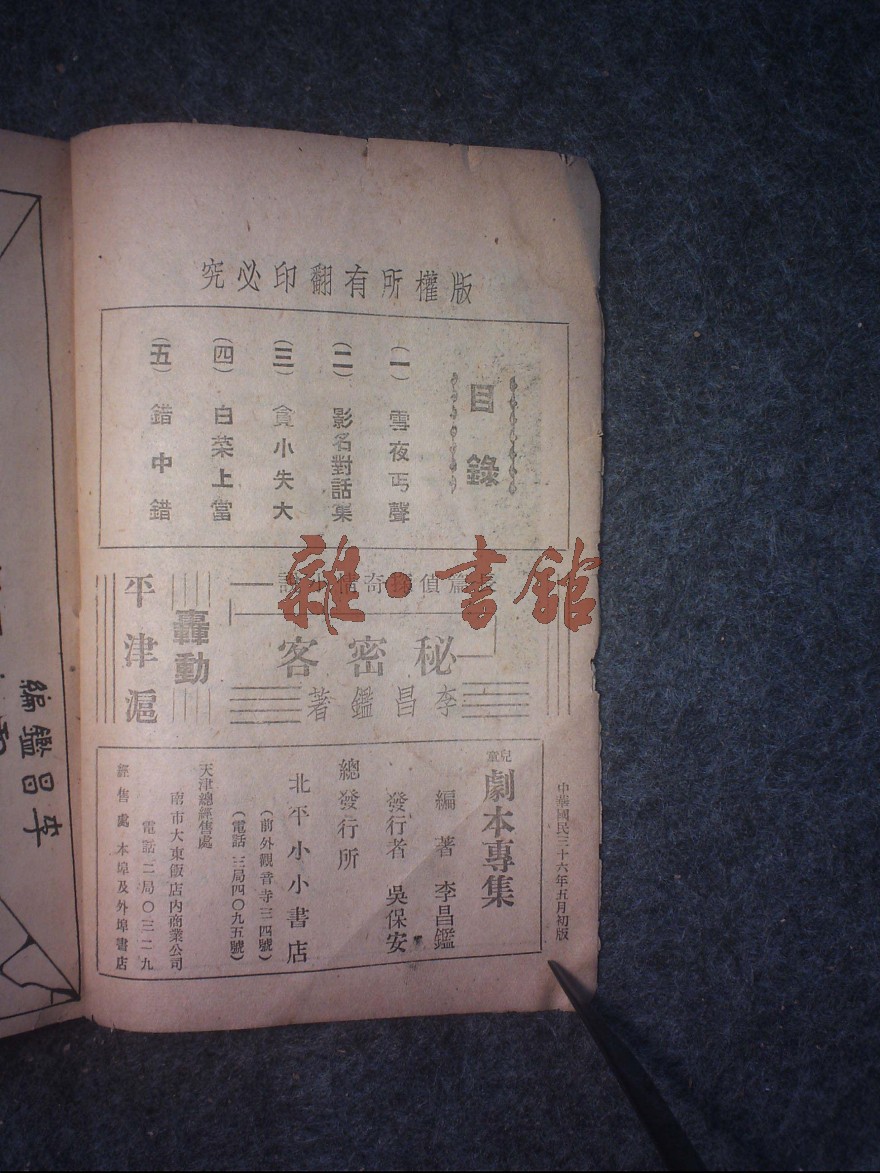 版權所有翻印必究
目錄
(一) 雪夜丐聲
(二) 影名對話集
(三) 貪小失大
(四) 白菜上當
(五) 錯中錯
雜·書館
長篇偵探奇情小說
秘密客
李昌鑑著
轟動
平津滬
中華國民三十六年五月初版
兒童
劇本專集
編著 李昌鑑
發行者 吳保安
總發行所
北平小小書店
(前外觀音寺三四號)
(電話三局四〇九五號)
天津總經售處
南市大東飯店內商業公司
電話二局〇三二九
經售處 本埠及外埠書店
李昌鑑編